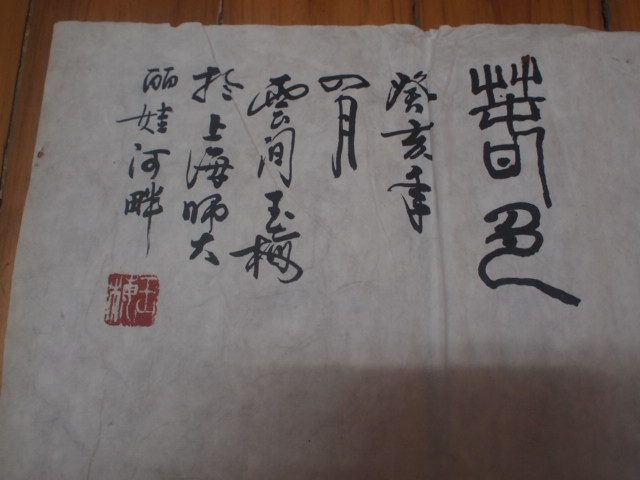 春色
癸亥年
四月
雲间玉梅
於上海師大
丽娃河畔